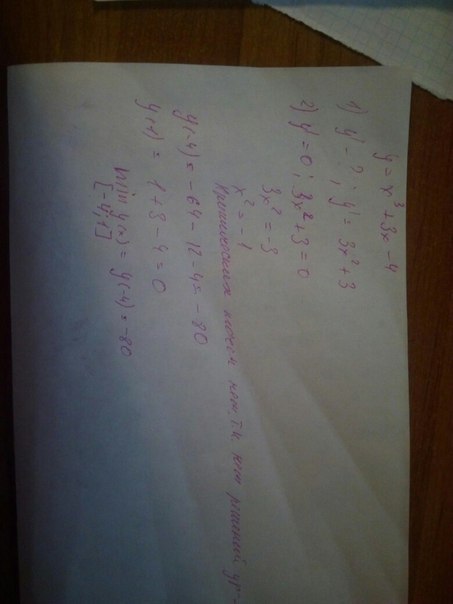 y = x³ + 3x - 4
1) y' - ? , y' = 3x² + 3
2) y' = 0 ; 3x² + 3 = 0
3x² = -3
x² = -1
Критических точек нет, т.к. нет решений ур-
y(-4) = -64 - 12 - 4 = -80
y(1) = 1 + 3 - 4 = 0
min y(x) = y(-4) = -80
[-4; 1]